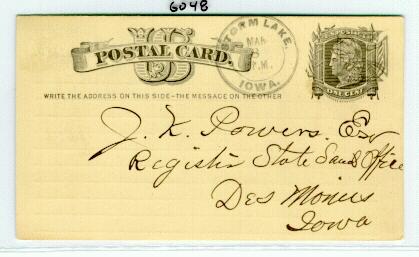 6048
POSTAL CARD.
US
WRITE THE ADDRESS ON THIS SIDE - THE MESSAGE ON THE OTHER
STORM LAKE,
MAR
P.M.
IOWA.
ONE CENT
J. K. Powers. Esq
Register State Land Office
Des Moines
Iowa